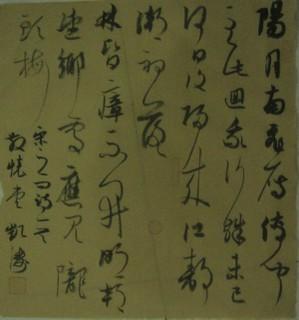 陽月南飛雁傳聞
至此迴我行殊未已
何日復歸來江靜
潮初落
林昏瘴不開明朝
望鄉處應見隴
頭梅
宋之問詩一首